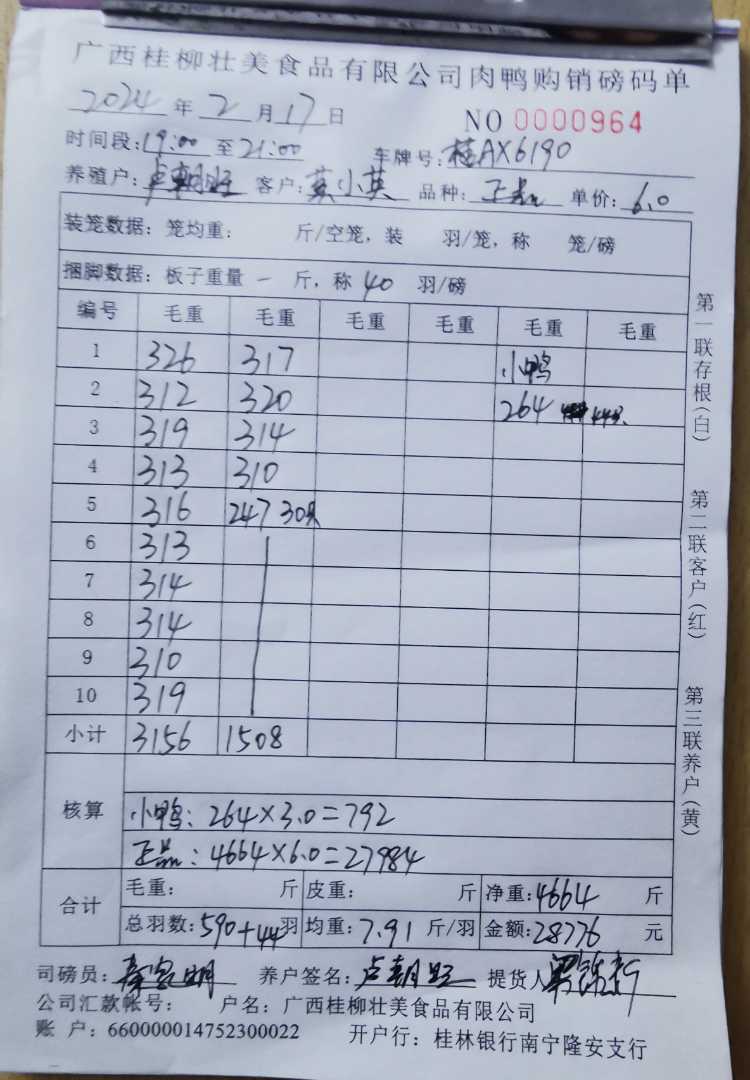 广西桂柳壮美食品有限公司肉鸭购销磅码单
2024 年 2 月 17 日 NO 0000964
时间段: 19:00 至 21:00 车牌号: 桂AX6190
养殖户: 卢朝旺 客户: 黄小英 品种: 正品 单价: 6.0
装笼数据: 笼均重: 斤/空笼, 装 羽/笼, 称 笼/磅
捆脚数据: 板子重量 一 斤, 称 40 羽/磅
编号 毛重 毛重 毛重 毛重 毛重 毛重
1 326 317 小鸭
2 312 320 264 44只
3 319 314
4 313 310
5 316 247 30只
6 313
7 314
8 314
9 310
10 319
小计 3156 1508
核算
小鸭: 264×3.0=792
正品: 4664×6.0=27984
合计
毛重: 斤 皮重: 斤 净重: 4664 斤
总羽数: 590+44 羽 均重: 7.91 斤/羽 金额: 28776 元
司磅员: 养户签名: 卢朝旺 提货人
公司汇款帐号: 户名: 广西桂柳壮美食品有限公司
账 户: 660000014752300022 开户行: 桂林银行南宁隆安支行
第一联存根(白)
第二联客户(红)
第三联养户(黄)